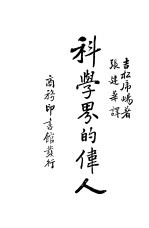 吉松虎暢著
張建華譯
科學界的偉人
商務印書館發行